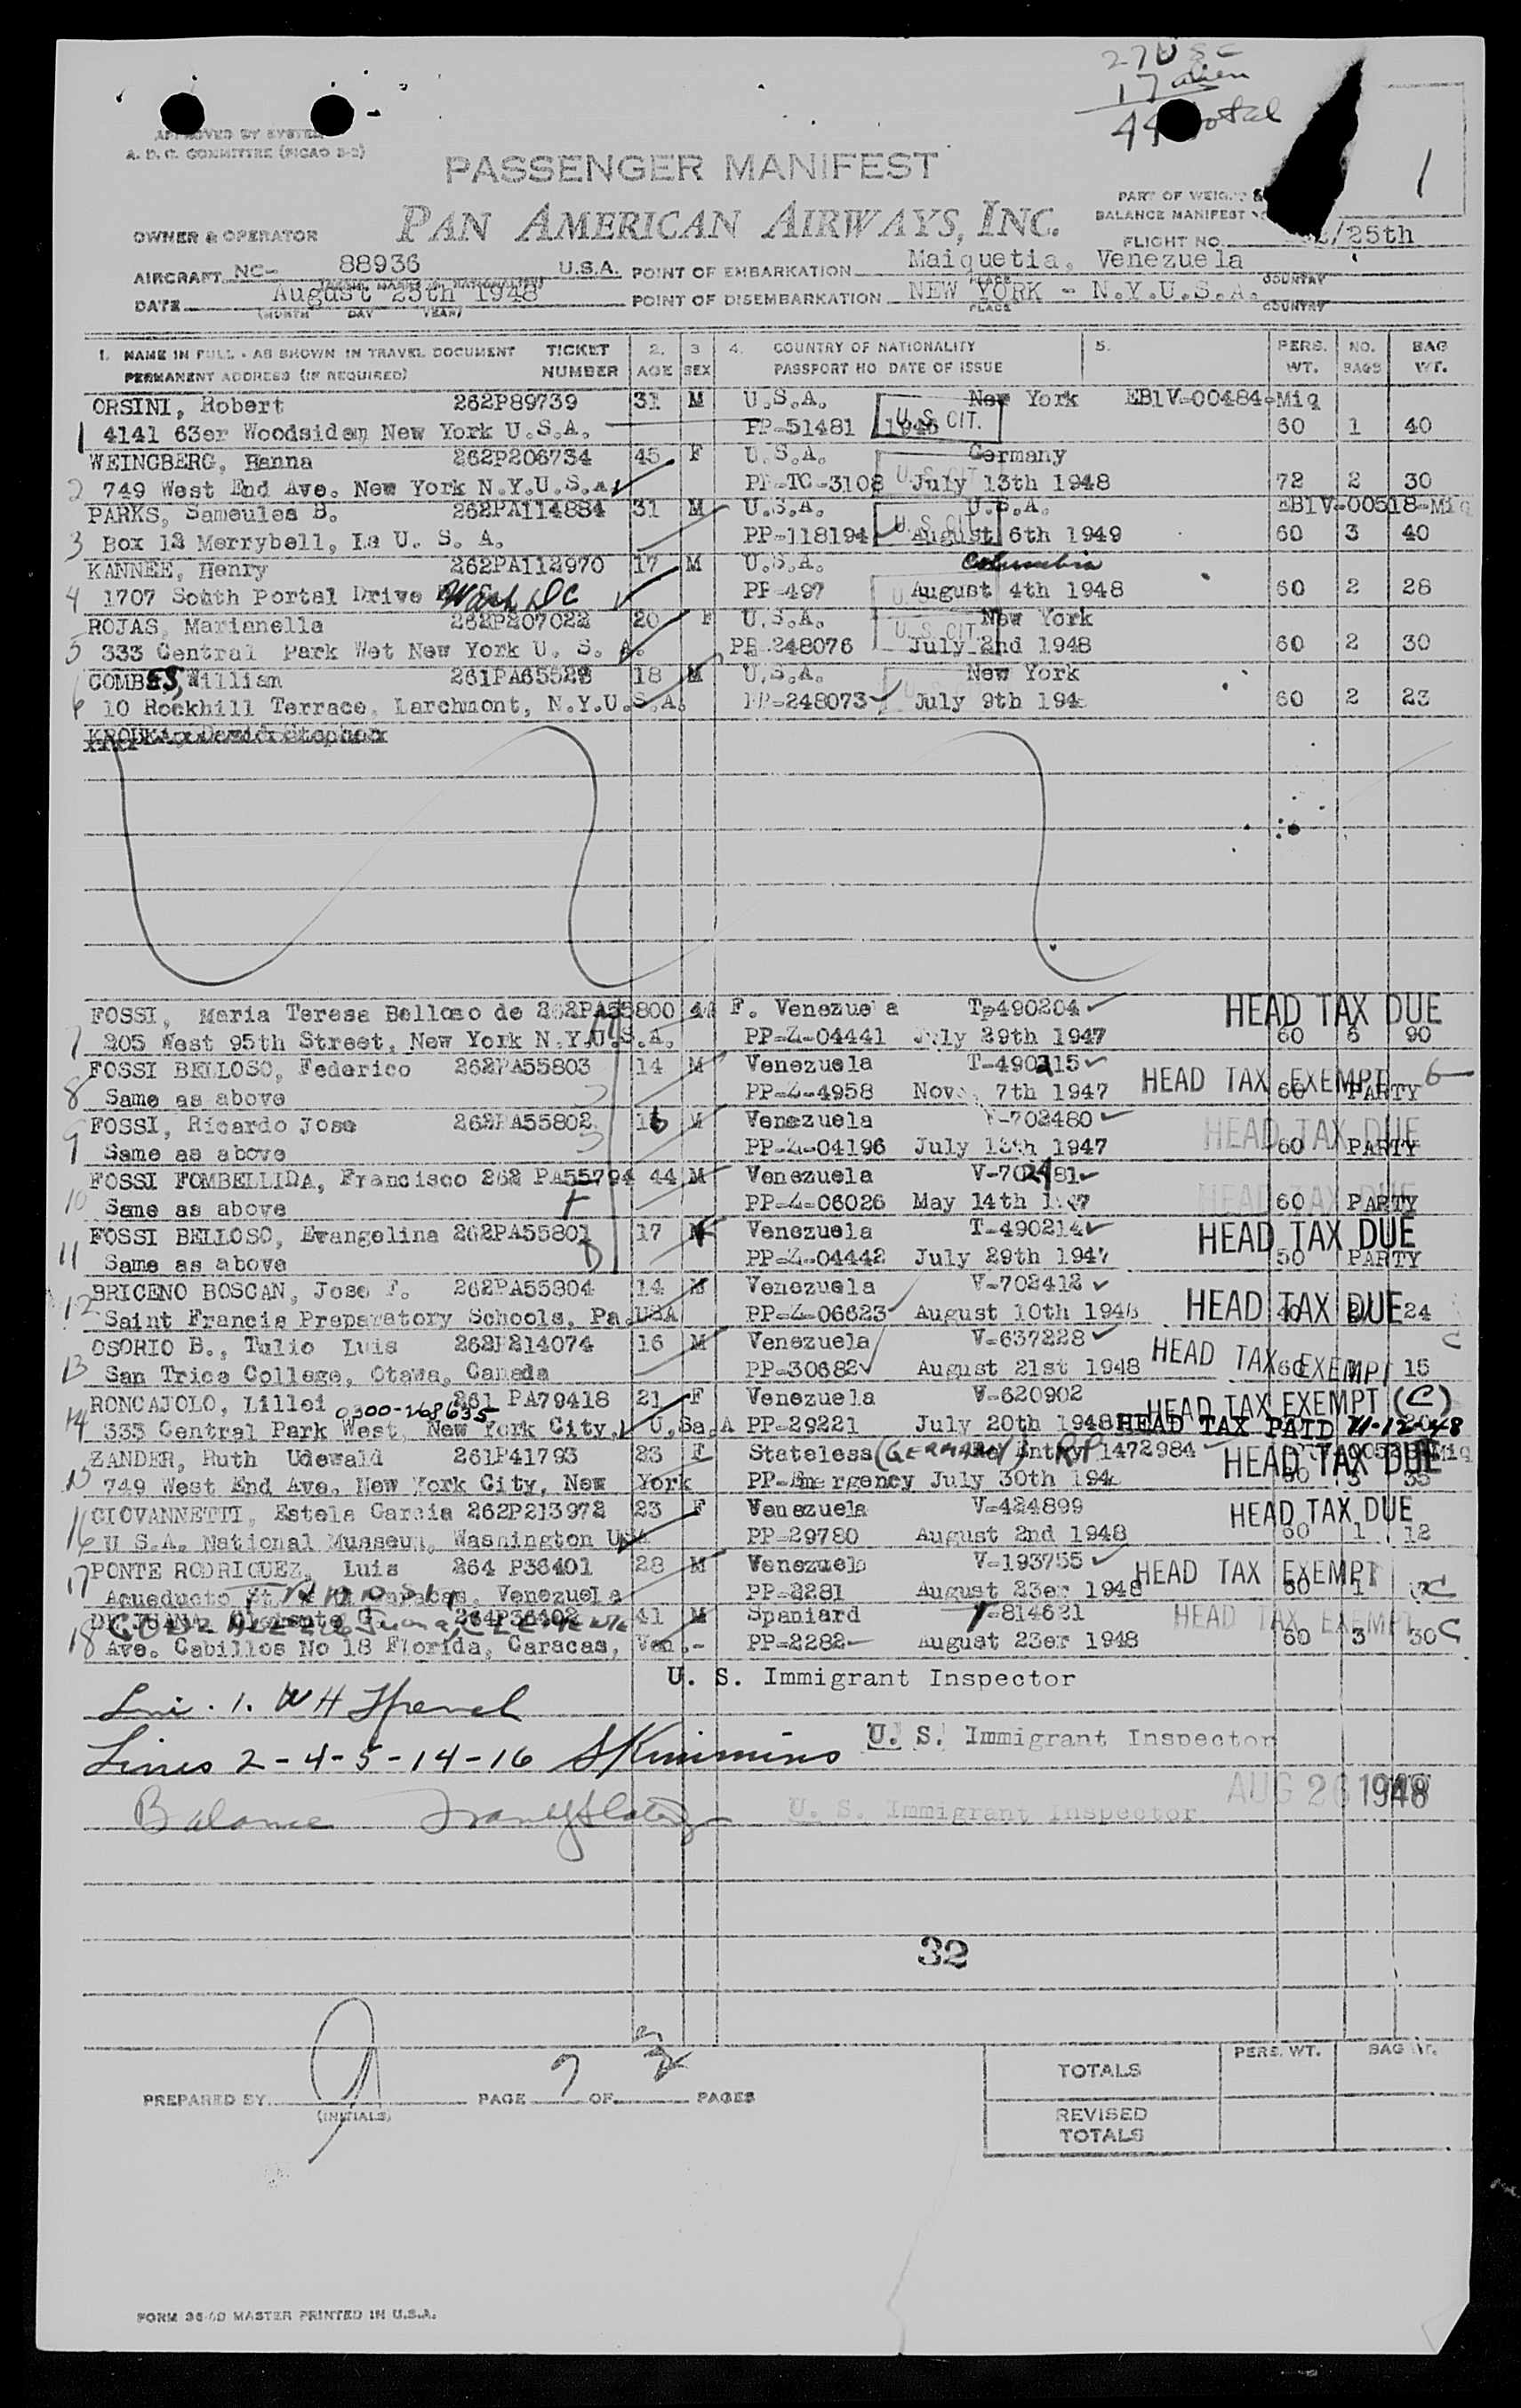 27 USC
17 alien
44 total
A. D. C. COMMITTEE (PICAO 2-2)
PASSENGER MANIFEST
1
PART OF WEIGHT &
BALANCE MANIFEST
PAN AMERICAN AIRWAYS, INC.
OWNER & OPERATOR
FLIGHT NO. /25th
AIRCRAFT NC- 88936 U.S.A. POINT OF EMBARKATION Maiquetia, Venezuela
PLACE COUNTRY
DATE August 25th 1948 POINT OF DISEMBARKATION NEW YORK - N.Y.U.S.A.
(MONTH DAY YEAR) PLACE COUNTRY
1. NAME IN FULL - AS SHOWN IN TRAVEL DOCUMENT TICKET 2. 3 4. COUNTRY OF NATIONALITY 5. PERS. NO. BAG
PERMANENT ADDRESS (IF REQUIRED) NUMBER AGE SEX PASSPORT NO DATE OF ISSUE WT. BAGS WT.
ORSINI, Robert 262P89739 31 M U.S.A. New York EB1V-00484-Miq
1 4141 63er Woodsiden New York U.S.A. PP-51481 1946 U.S. CIT. 60 1 40
WEINGBERG, Hanna 262P206734 45 F U.S.A. Germany
2 749 West End Ave. New York N.Y.U.S.A. PP-TC-3108 July 13th 1948 U.S. CIT 72 2 30
PARKS, Sameules B. 262PA114884 31 M U.S.A. U.S.A. EB1V-00518-Miq
3 Box 13 Merrybell, La U. S. A. PP-118194 August 6th 1949 U.S. CIT 60 3 40
KANNEE, Henry 262PA112970 17 M U.S.A. Columbia
4 1707 South Portal Drive Wash DC PP-497 August 4th 1948 U.S. 60 2 28
ROJAS, Marianella 262P207022 20 F U.S.A. New York
5 333 Central Park Wet New York U. S. A. PP-248076 July 2nd 1948 U.S. CIT 60 2 30
COMBES, William 261PA65528 18 M U.S.A. New York
6 10 Rockhill Terrace, Larchmont, N.Y.U.S.A. PP-248073 July 9th 194 60 2 23
FOSSI, Maria Teresa Belloso de 262PA55800 F. Venezuela T-490204 HEAD TAX DUE
7 205 West 95th Street, New York N.Y.U.S.A. PP-4-04441 July 29th 1947 60 6 90
FOSSI BELLOSO, Federico 262PA55803 14 M Venezuela T-490215 HEAD TAX EXEMPT
8 Same as above PP-4-4958 Nov. 7th 1947 60 PARTY
FOSSI, Ricardo Jose 262PA55802 16 M Venezuela -702480 HEAD TAX DUE
9 Same as above PP-4-04196 July 13th 1947 60 PARTY
FOSSI FOMBELLIDA, Francisco 262 PA55794 44 M Venezuela V-702481 HEAD TAX DUE
10 Same as above PP-4-06026 May 14th 1947 60 PARTY
FOSSI BELLOSO, Evangelina 262PA55801 17 Venezuela T-490214 HEAD TAX DUE
11 Same as above PP-4-04442 July 29th 1947 50 PARTY
BRICENO BOSCAN, Jose F. 262PA55804 14 M Venezuela V-702412 HEAD TAX DUE
12 Saint Francis Preparatory Schools, Pa.USA PP-4-06623 August 10th 1948 40 24
OSORIO B., Tulio Luis 262P214074 16 M Venezuela V-637228 HEAD TAX EXEMPT C
13 San Trice College, Otawa, Canada PP-30682 August 21st 1948 60 1 15
RONCAJOLO, Lillei 261 PA79418 21 F Venezuela V-620902 HEAD TAX EXEMPT (C)
0300-268635
14 333 Central Park West, New York City, U.Sa.A PP-29221 July 20th 1948 HEAD TAX PAID
ZANDER, Ruth Udewald 261P41793 23 F Stateless (GERMANY) Entry RP 1472984 HEAD TAX DUE
15 749 West End Ave. New York City, New York PP-Emergency July 30th 194 60 3 35
GIOVANNETTI, Estela Garcia 262P213972 23 F Venezuela V-424899 HEAD TAX DUE
16 U S.A. National Musseum, Washington USA PP-29780 August 2nd 1948 60 1 12
PONTE RODRIGUEZ, Luis 264 P36401 28 M Venezuela V-193755 HEAD TAX EXEMPT
17 Acueducto Caracas, Venezuela PP-2281 August 23er 1948 60 1 C
264P36402 41 M Spaniard T-814621 HEAD TAX EXEMPT
18 Ave. Cabillos No 18 Florida, Caracas, Ven.- PP-2282 August 23er 1948 60 3 30 C
U. S. Immigrant Inspector
Lines 2-4-5-14-16 U. S. Immigrant Inspector
AUG 26 1948
Balance U. S. Immigrant Inspector
32
PREPARED BY PAGE OF PAGES
(INITIALS)
PERS. WT. BAG WT.
TOTALS
REVISED
TOTALS
MASTER PRINTED IN U.S.A.